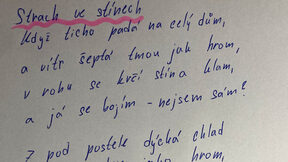 Strach ve stínech
Když ticho padá na celý dům,
a vítr šeptá tmou jak hrom,
v rohu se krčí stína klam,
a já se bojím - nejsem sám?
Z pod postele dýchá chlad
hrom,